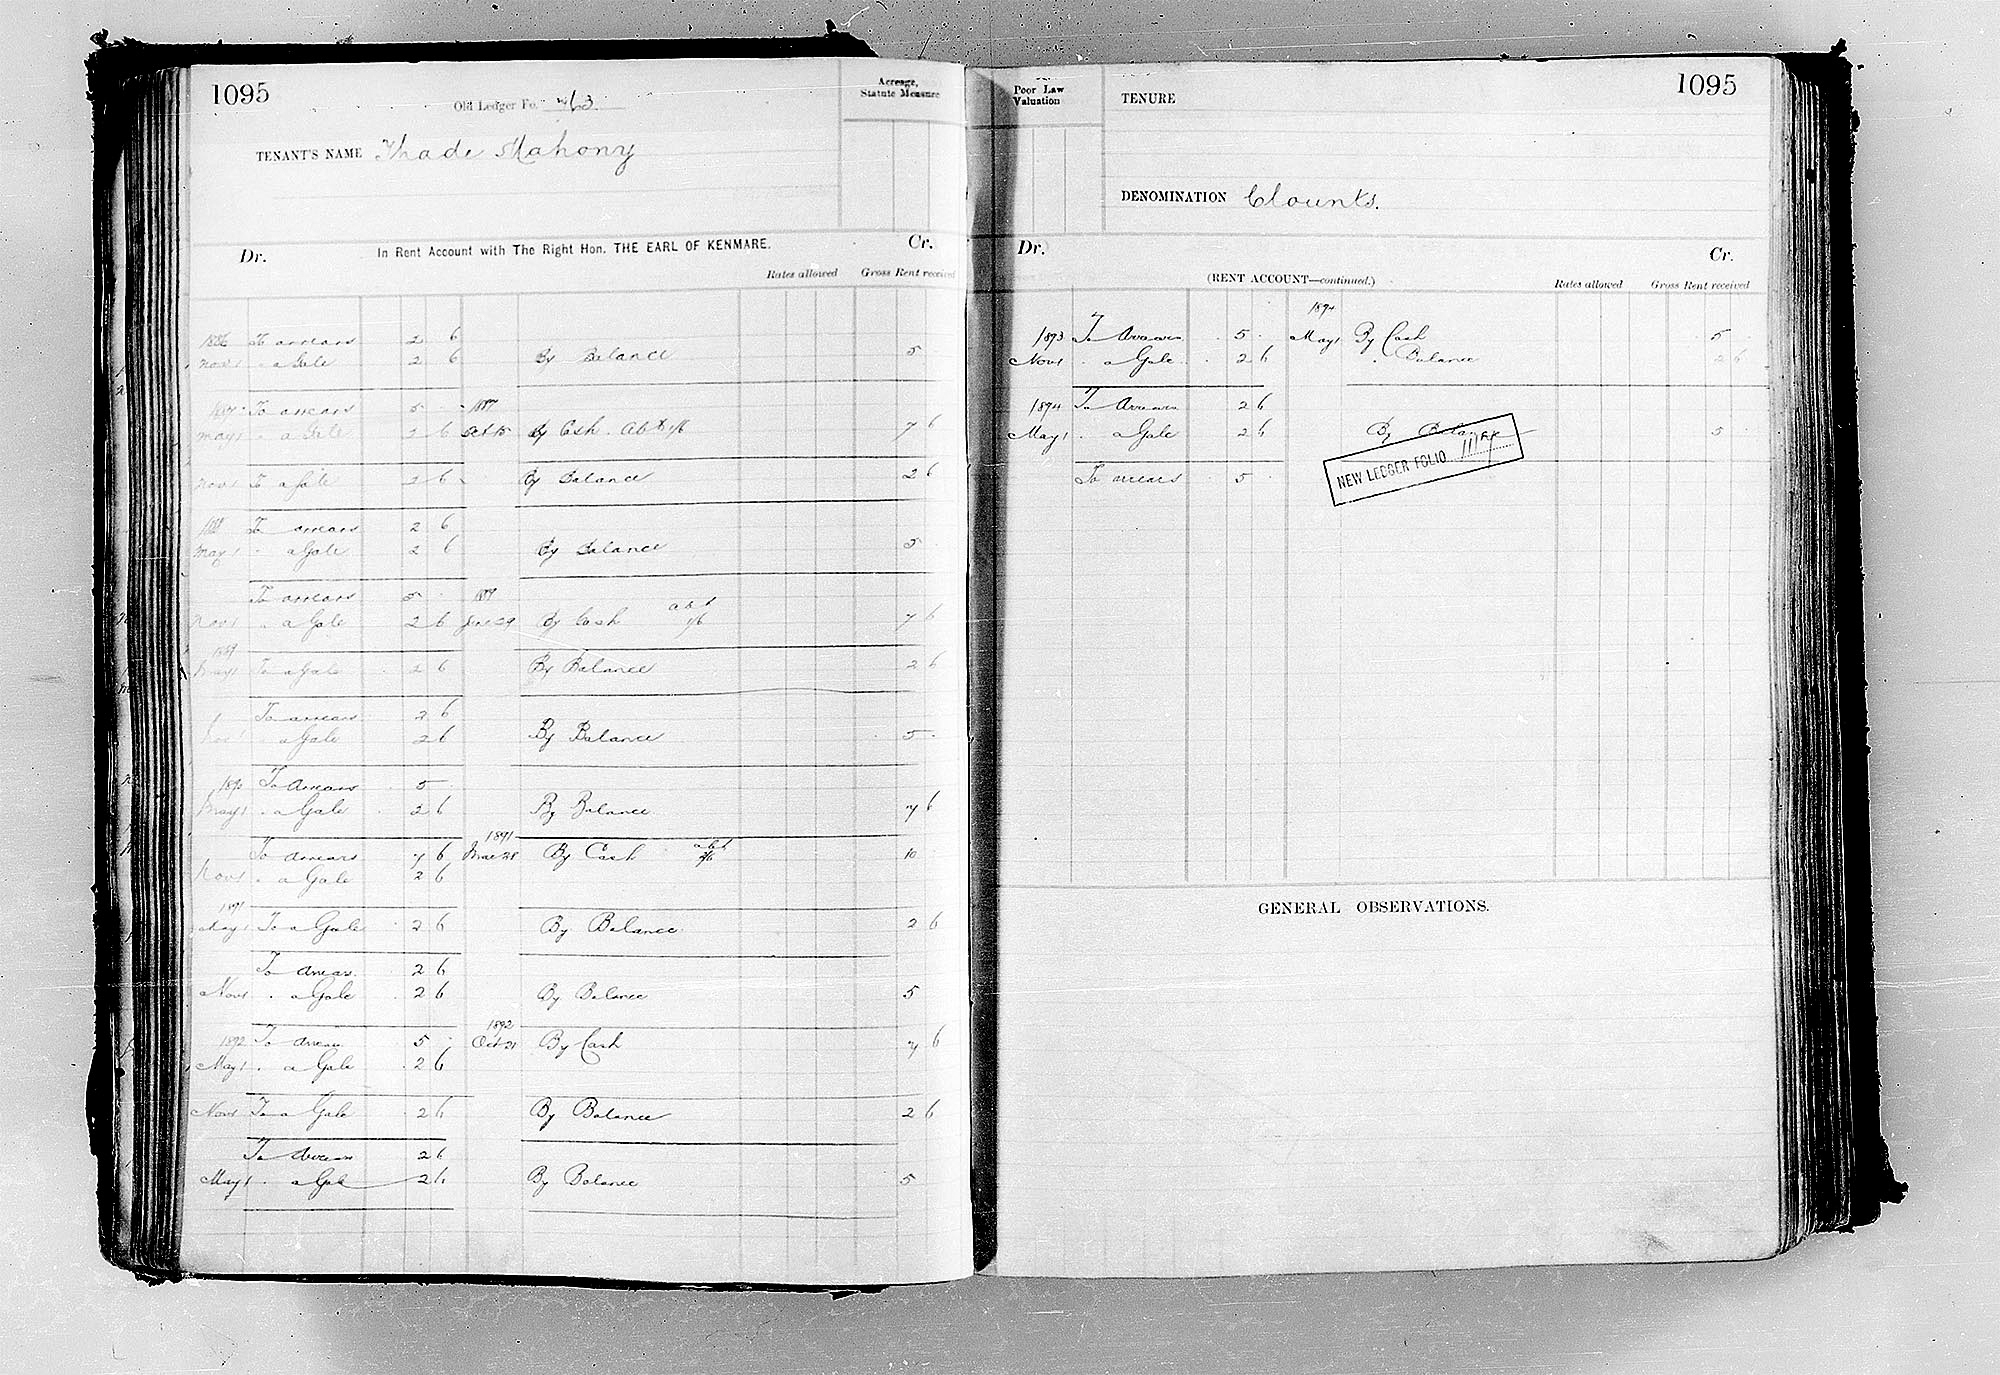 1095
Old Ledger Fo. 763
Acreage,
Statute Measure
TENANT'S NAME Thade Mahony
Dr. In Rent Account with The Right Hon. THE EARL OF KENMARE. Cr.
Rates allowed Gross Rent received
1886 To arrears 2 6
Nov 1 " a Gale 2 6 By Balance 5
1887 To arrears 5 - 1887
May 1 " a Gale 2 6 Oct 15 By Cash. Abt 1/6 7 6
Nov 1 To a Gale 2 6 By Balance 2 6
1888 To arrears 2 6
May 1 " a Gale 2 6 By Balance 5
To arrears 5 1889
Nov 1 " a Gale 2 6 Jan 29 By Cash abt 1/6 7 6
1889
May 1 To a Gale 2 6 By Balance 2 6
To arrears 2 6
Nov 1 " a Gale 2 6 By Balance 5
1890 To Arrears 5
May 1 " a Gale 2 6 By Balance 7 6
1891
To arrears 7 6 Mar 28 By Cash abt 10
Nov 1 " a Gale 2 6
1891
May 1 To a Gale 2 6 By Balance 2 6
To Arrears 2 6
Nov 1 " a Gale 2 6 By Balance 5
1892
1892 To Arrears 5 Oct 21 By Cash 7 6
May 1 " a Gale 2 6
Nov 1 To a Gale 2 6 By Balance 2 6
To Arrears 2 6
May 1 " a Gale 2 6 By Balance 5
Poor Law
Valuation
TENURE
1095
DENOMINATION Clounts.
Dr. Cr.
(RENT ACCOUNT—continued.) Rates allowed Gross Rent received
1894
1893 To Arrears 5 May 1 By Cash 5
Nov 1 " a Gale 2 6 " Balance 2 6
1894 To Arrears 2 6
May 1 " a Gale 2 6 By Balance 5
NEW LEDGER FOLIO
To arrears 5
GENERAL OBSERVATIONS.